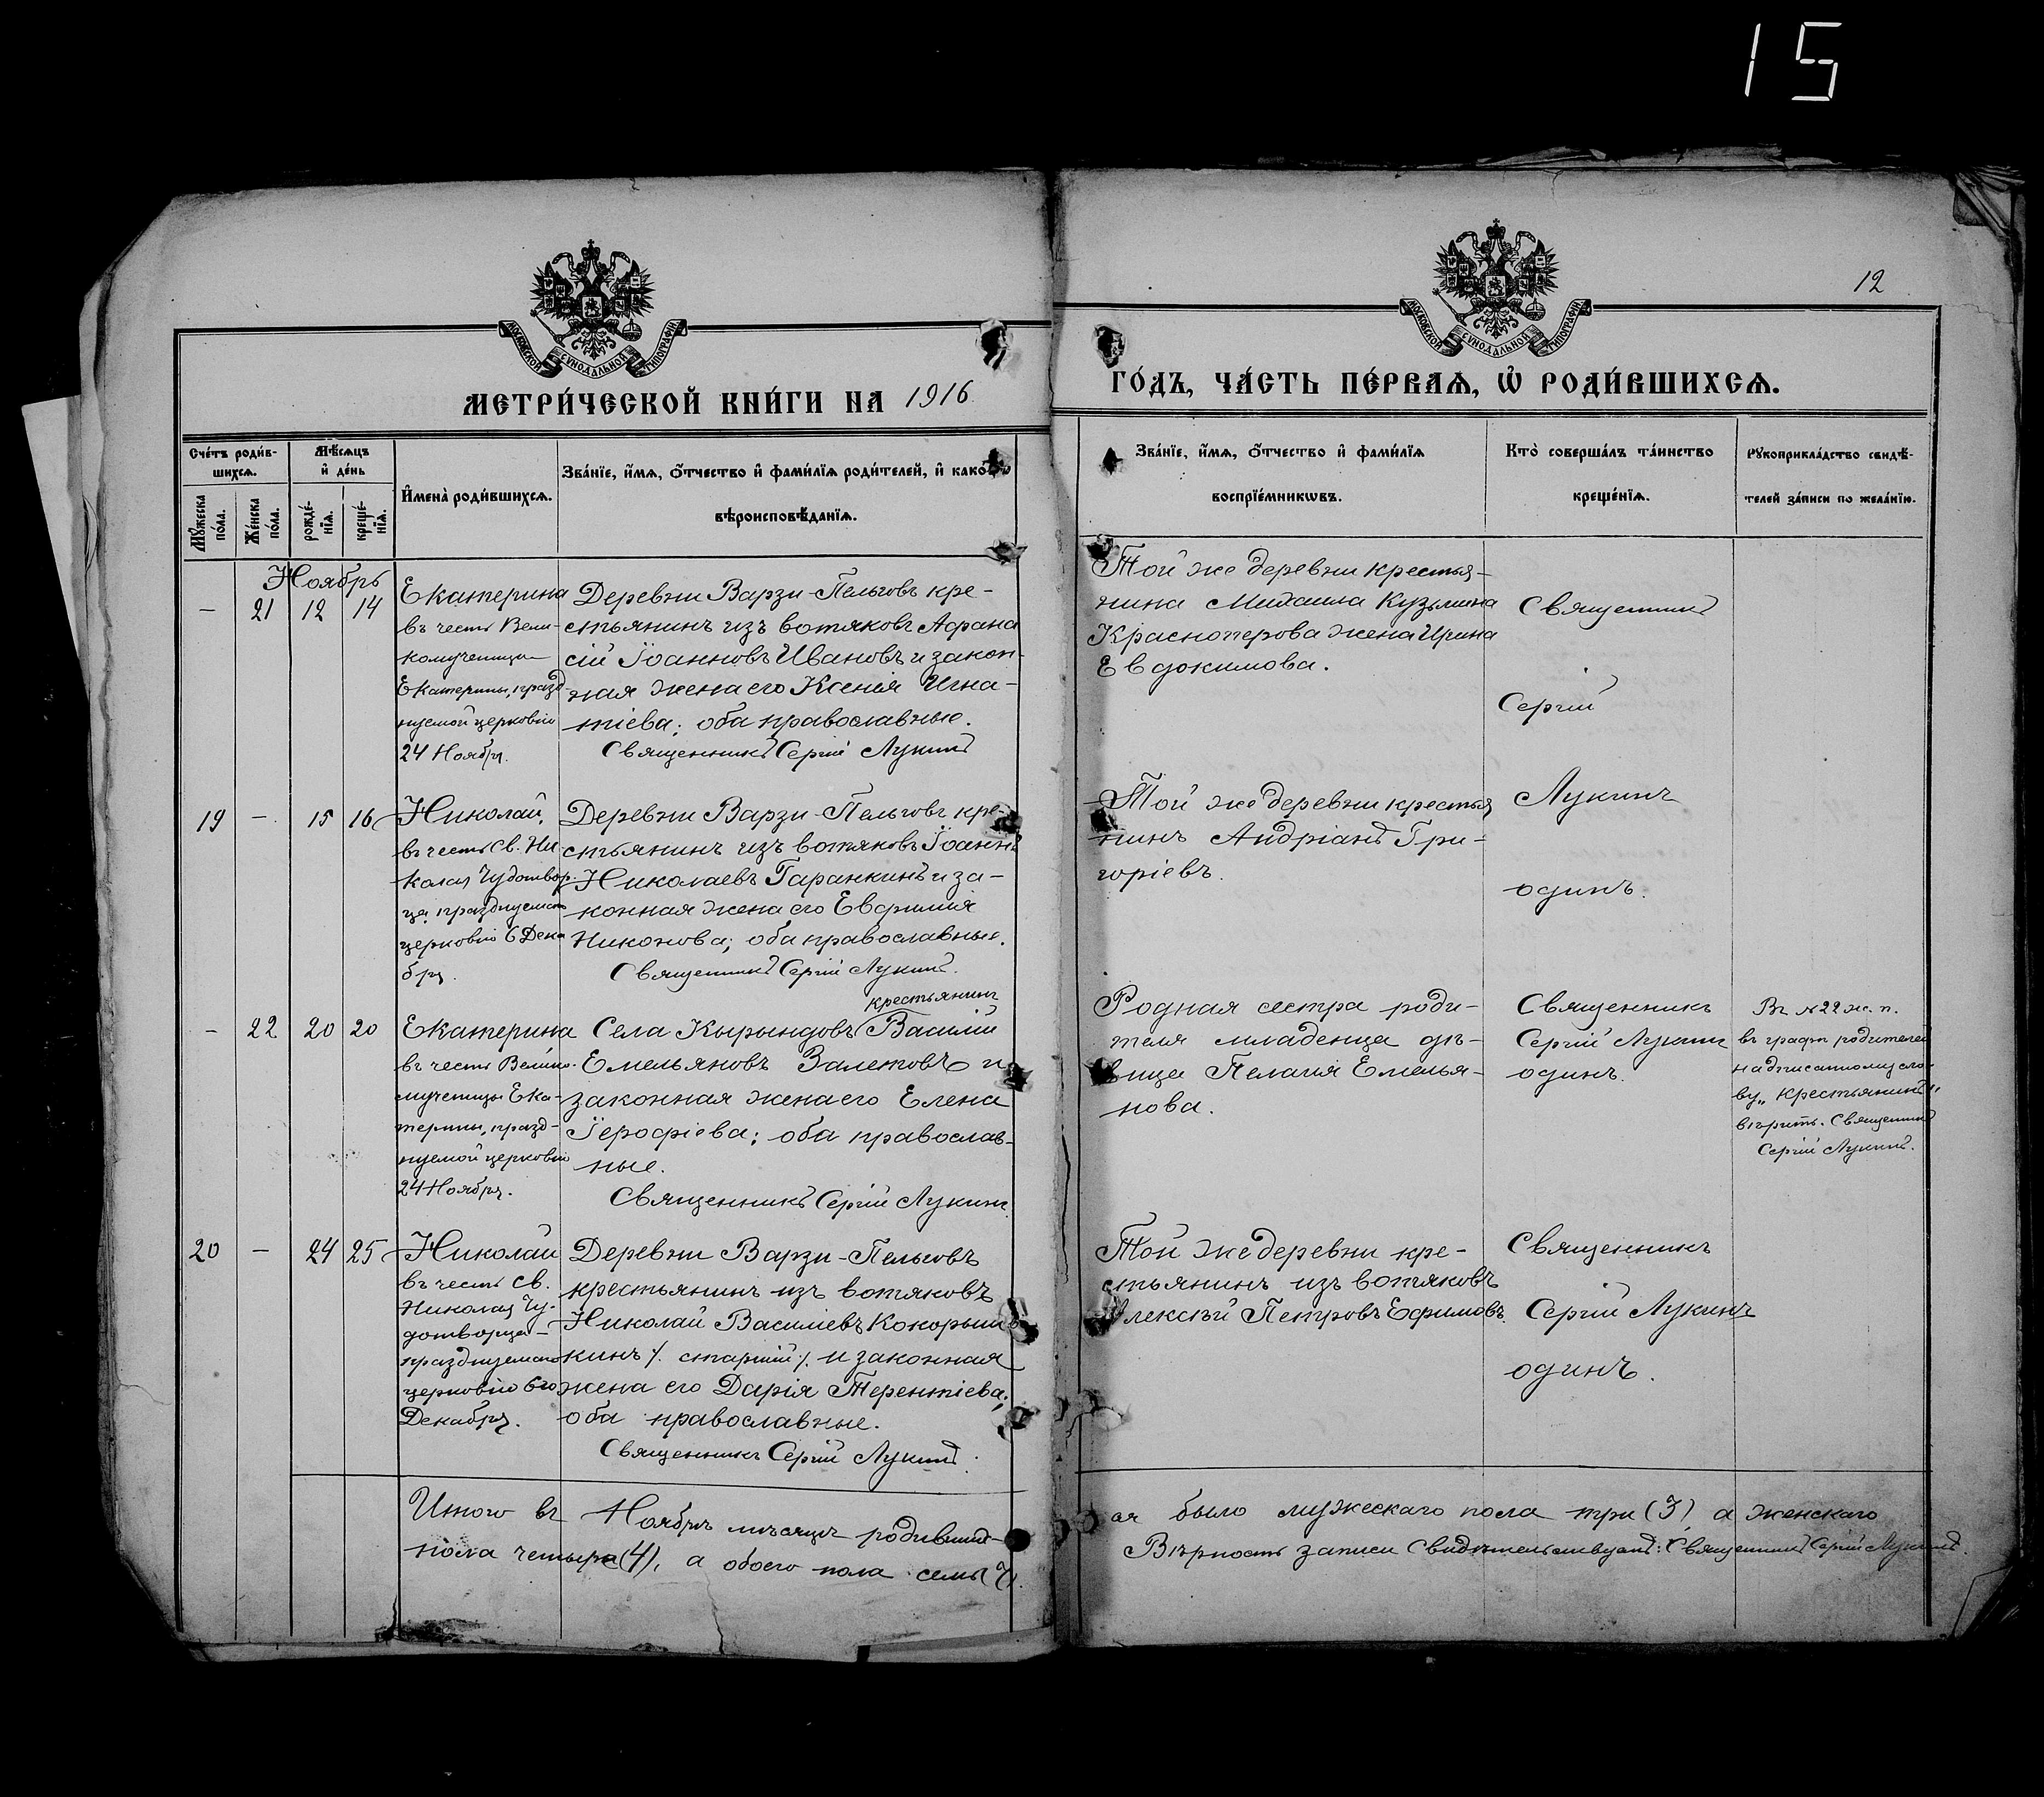 15
12
МОСКОВСКОЙ СѴНОДАЛЬНОЙ ТИПОГРАФІИ
МОСКОВСКОЙ СѴНОДАЛЬНОЙ ТИПОГРАФІИ
МЕТРИ́ЧЕСКОЙ КНИ́ГИ НА 1916
ГО́ДЪ, ЧА́СТЬ ПЕ́РВАѦ, Ѡ҆ РОДИ́ВШИХСѦ.
Сче́тъ роди́в-
шихсѧ.
Мѣ́сѧцъ
и҆ де́нь
Мꙋ́жеска по́ла.
Же́нска по́ла.
рожде́-
нїѧ.
креще́-
нїѧ.
И҆мена̀ роди́вшихсѧ.
Зва́нїе, и҆́мѧ, ѻ҆́тчество и҆ фами́лїѧ роди́телей, и҆ како́гѡ
вѣроисповѣ́данїѧ.
Зва́нїе, и҆́мѧ, ѻ҆́тчество и҆ фами́лїѧ
воспрїе́мникѡвъ.
Кто̀ соверша́лъ та́инство
креще́нїѧ.
Рꙋкоприкла́дство свидѣ́-
телей за́писи по жела́нїю.
Ноябрь
– 21 12 14
Екатерина
въ честь Вели-
комученицы
Екатерины, празд-
нуемой церковію
24 Ноября.
Деревни Варзи-Пельговъ кре-
стьянинъ изъ вотяковъ Афана
сій Іоанновъ Ивановъ и закон-
ная жена его Ксенія Игна-
тіева; оба православные.
Священникъ Сергій Лукинъ
Той же деревни крестья-
нина Михаила Кузьмина
Красноперова жена Ирина
Евдокимова.
Священникъ
Сергій
Лукинъ
одинъ.
19 – 15 16
Николай,
въ честь Св. Ни-
колая Чудотвор-
ца, празднуемаго
церковію 6 Дека
бря.
Деревни Варзи-Пельговъ кре-
стьянинъ изъ вотяковъ Іоаннъ
Николаевъ Гаранкинъ и за-
конная жена его Евфимія
Никонова; оба православные.
Священникъ Сергій Лукинъ.
Той же деревни крестья
нинъ Андріанъ Гри-
горіевъ.
– 22 20 20
Екатерина
въ честь Велико-
мученицы Ека-
терины, празд-
нуемой церковію
24 Ноября.
крестьянинъ
Села Кырындовъ Василій
Емельяновъ Залетовъ и
законная жена его Елена
Іерофіева; оба православ-
ные.
Священникъ Сергій Лукинъ
Родная сестра роди-
теля младенца дѣ-
вица Пелагія Емелья-
нова.
Священникъ
Сергій Лукинъ
одинъ.
Въ №22 ж. п.
въ графѣ родителей
надписанному сло-
ву „Крестьянинъ„
вѣрить. Священникъ
Сергій Лукинъ.
20 – 24 25
Николай
въ честь Св.
Николая Чу-
дотворца–
празднуемаго
церковію 6го
Декабря.
Деревни Варзи-Пельговъ
крестьянинъ изъ вотяковъ
Николай Василіевъ Кокорыш-
кинъ /. старшій ./. и законная
жена его Дарія Терентіева;
оба православные.
Священникъ Сергій Лукинъ.
Той же деревни кре-
стьянинъ изъ вотяковъ
Алексѣй Петровъ Ефимовъ.
Священникъ
Сергій Лукинъ
одинъ.
Итого въ Ноябрѣ мѣсяцѣ родивших-
ся было мужескаго пола три (3) а женскаго
пола четыре (4), а обоего пола семь (7).
Вѣрность записи свидѣтельствуетъ: Священникъ Сергій Лукинъ.